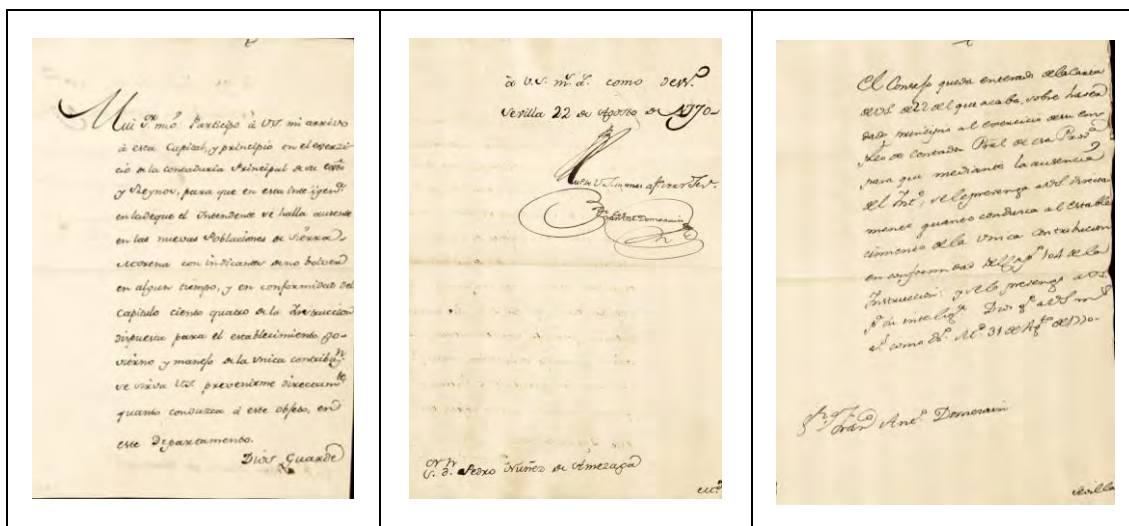 Mui S.r mio. Participo à VS. mi arrivo
à esta Capital, y principio en el exerzi
cio de la contaduria Principal de su
y Reynos, para que en esta intelig.
en la de que el Intendente se halla ausente
en las nuevas Poblaciones de Sierra
Morena con indicantes de no bolver
en algun tiempo, y en conformidad del
Capitulo ciento quatro de la Instruccion
dispuesta para el establecimiento, go-
vierno y manejo de la Unica contribuz.n
se sirva VS. prevenirme directam.te
quanto conduzca à este objeto, en
este Departamento.
Dios Guarde
à V.S. m.s a.s como deseo
Sevilla 22 de Agosto de 1770-
S.r D.n Pedro Nuñez de Amezaga
El Consejo queda enterado de la carta
de VS. de 22 del que acaba, sobre haver
dado principio al exercicio de su em
pleo de Contador Pral de esa Prov.a
para que mediante la ausencia
del Int.e, se le prevenga a VS. directa
mente quanto conduzca al estable
cimiento de la Unica Contribucion
en conformidad del Cap.o 104 de la
Instruccion: y se lo prevengo a VS.
p.a su intelig.a Dios g.e a VS. m.s
a.s como d.o M.d 31 de Ag.to de 1770-
Ant.o Domerain
Sevilla